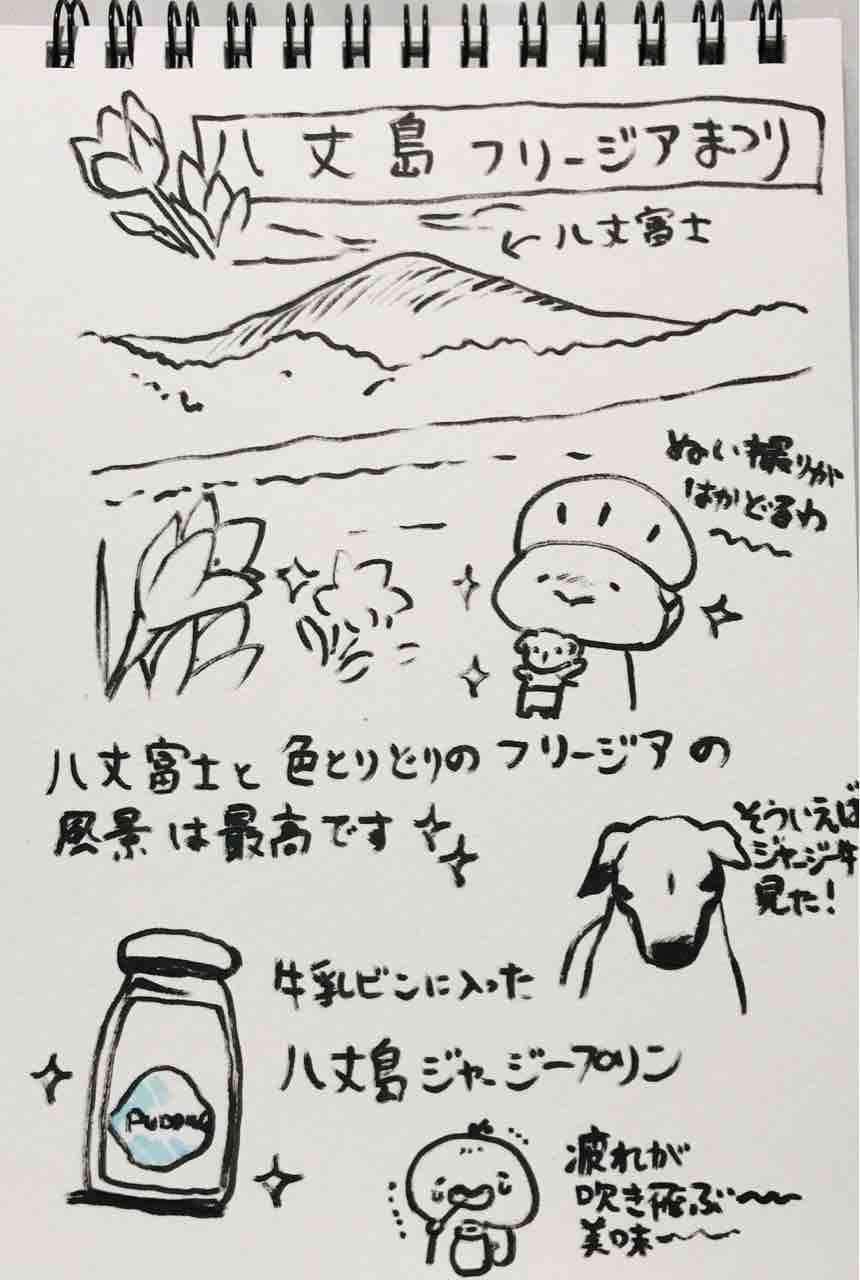 八丈島 フリージアまつり
←八丈富士
ぬい撮りが
はかどるわ
八丈富士と色とりどりのフリージアの
風景は最高です
そういえば
ジャージー牛
見た!
牛乳ビンに入った
八丈島ジャージープリン
PUDDING
疲れが
吹き飛ぶ〜〜
美味〜〜